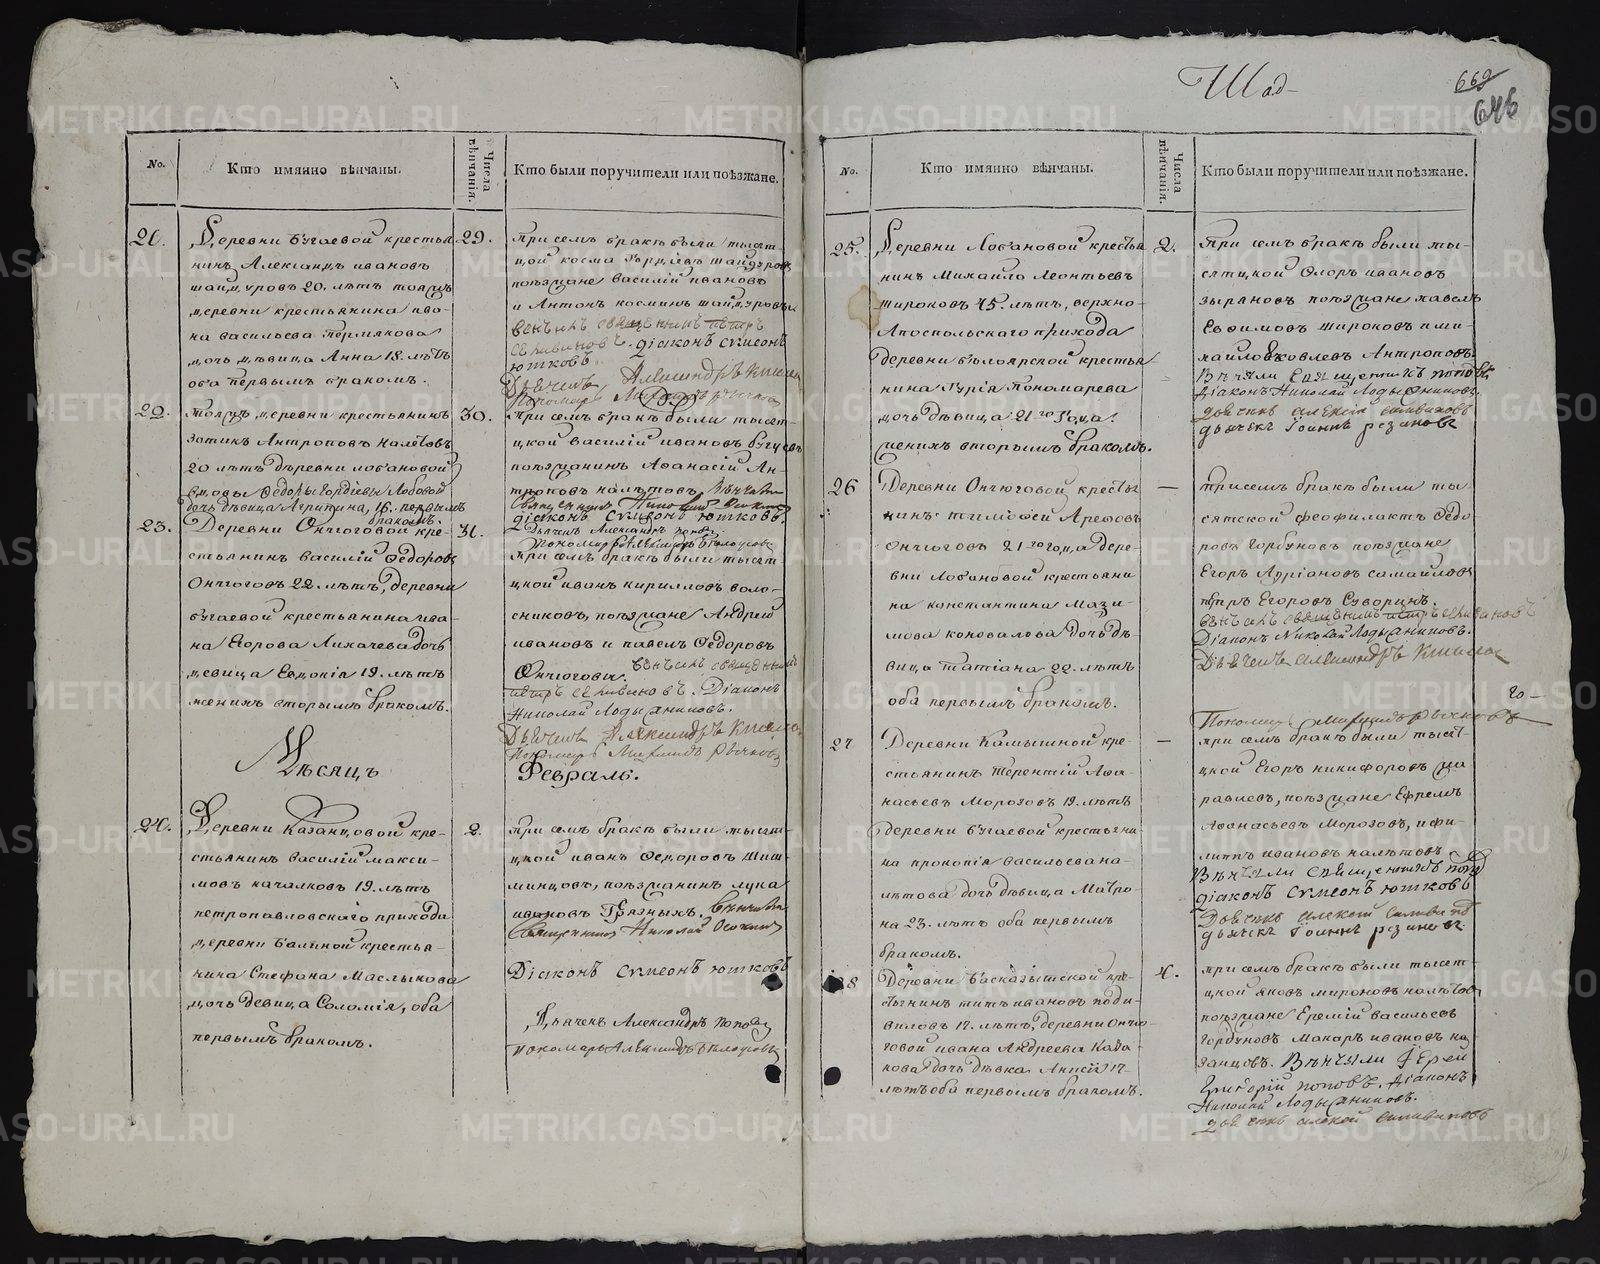 Шад-
669
646
No.
Кто имянно вѣнчаны.
Числа вѣнчанія.
Кто были поручители или поѣзжане.
21.
Деревни Бугаевой крестья
нинъ Александъ Ивановъ
Шайдуровъ 20. лѣтъ тояжъ
деревни крестьянина Ива-
на Васильева Пермякова
дочь дѣвица Анна 18. лѣтъ
оба первымъ бракомъ.
29.
При семъ бракѣ были тысят-
цкой Косма Шайдуровъ
поѣзжане Василій Ивановъ
и Антонъ Косминъ Шайдуровы
священникъ Петръ
Селивановъ. Діаконъ Симеонъ
Ютковъ.
Дьячекъ Александръ
Пономарь
22.
Тояжъ деревни крестьянинъ
Зотикъ Антроповъ Налетовъ
20 лѣтъ деревни Лобановой
вдовы Федоры Гордіевы Лобовой
дочь дѣвица Агрипина, первымъ
бракомъ.
30.
При семъ бракѣ были тысят-
цкой Василій Ивановъ
поѣзжанинъ Афанасій Ан-
троповъ Налѣтовъ, Вѣнчалъ
Священникъ Николай Осокинъ
Діаконъ Симеонъ Ютковъ.
Дьячекъ Александръ Поповъ
Пономарь Александръ Белоусовъ
23.
Деревни Ончюговой кре-
стьянинъ Василій Федоровъ
Ончюговъ 22 лѣтъ, деревни
Бугаевой крестьянина Ива-
на Егорова Лихачева дочь
девица Евдокія 19. лѣтъ
женихъ вторымъ бракомъ.
31.
При семъ бракѣ были тысят
цкой Иванъ Кирилловъ Коло-
сниковъ, поѣзжане Андрей
Ивановъ и Павелъ Федоровъ
Ончюговы. священникъ
Петръ Селивановъ. Діаконъ
Николай Лодыжниковъ.
Дьячекъ Александръ
Пономарь Рычковъ
Мѣсяцъ
Февраль.
24.
Деревни Казанцовой кре-
стьянинъ Василій Макси-
мовъ Качалковъ 19. лѣтъ
Петропавловскаго прихода
деревни крестья-
нина Стефана Маслыкова
дочь девица Соломія, оба
первымъ бракомъ.
2.
При семъ бракѣ были тысят-
цкой Иванъ Федоровъ Шиш-
минцовъ, поѣзжанинъ Лука
Ивановъ Грязныхъ. Вѣнчалъ
Священникъ Николай Осокинъ
Діаконъ Симеонъ Ютковъ
Дьячекъ Александръ Поповъ
Пономарь Александръ Белоусовъ
No.
Кто имянно вѣнчаны.
Числа вѣнчанія.
Кто были поручители или поѣзжане.
25.
Деревни Лобановой крестья
нинъ Михайло Леонтьевъ
Широковъ 45. лѣтъ, Верхно-
Апостольскаго прихода
деревни Бѣлоярской крестья
нина Гурія Пономарева
дочь дѣвица 21го года.
женихъ вторымъ бракомъ.
2.
При семъ бракѣ были ты-
сятцкой Флоръ Ивановъ
Зыряновъ поѣзжане Павелъ
Евфимовъ Широковъ и Ми-
хайло Яковлевъ Антроповъ
Вѣнчали Священникъ Поповъ
Діаконъ Николай Лодыжниковъ.
дьячекъ Алексій Селивановъ
дьячекъ Іоаннъ Резановъ
26
Деревни Ончюговой крестья
нинъ Тимофей Арефовъ
Ончюговъ 21го года дере-
вни Лобановой крестьяни
на Константина Мази-
мова Коновалова дочь дѣ-
вица Татіана 22. лѣтъ
оба первымъ бракомъ.
—
При семъ бракѣ были ты-
сятской Феофилактъ Федо-
ровъ Горбуновъ поѣзжане
Егоръ Лупіановъ Самайловъ
Петръ Егоровъ Суворинъ.
священникъ Петръ Селивановъ
Діаконъ Николай Лодыжниковъ.
Дьячекъ Александръ
Пономарь Рычковъ
27
Деревни Камышной кре-
стьянинъ Терентій Афа-
насьевъ Морозовъ 19. лѣтъ
деревни Бугаевой крестьяни-
на Прокопія Васильева На-
лѣтова дочь дѣвица Матро-
на 23. лѣтъ оба первымъ
бракомъ.
—
При семъ бракѣ были тысят-
цкой Егоръ Никифоровъ Жу
равлевъ, поѣзжане Ефремъ
Афанасьевъ Морозовъ, и Фи-
липъ Ивановъ Налѣтовъ
Вѣнчали Священникъ Поповъ
Діаконъ Симеонъ Ютковъ
Дьячекъ Алексій Селивановъ
дьячекъ Іоаннъ Резановъ
28
Деревни крe-
стьянинъ Титъ Ивановъ Поди-
виловъ 17. лѣтъ, деревни Ончю-
говой Ивана Андреева Каба-
кова дочь дѣвка 17-
лѣтъ оба первымъ бракомъ.
4.
При семъ бракѣ были тысят-
цкой Яковъ Мироновъ Налѣтовъ
поѣзжане Еремій Васильевъ
Горбуновъ Макаръ Ивановъ Ка
занцовъ. Вѣнчали Іерей
Григорій Поповъ. Діаконъ
Николай Лодыжниковъ.
дьячекъ Алексій Селивановъ
METRIKI.GASO-URAL.RU